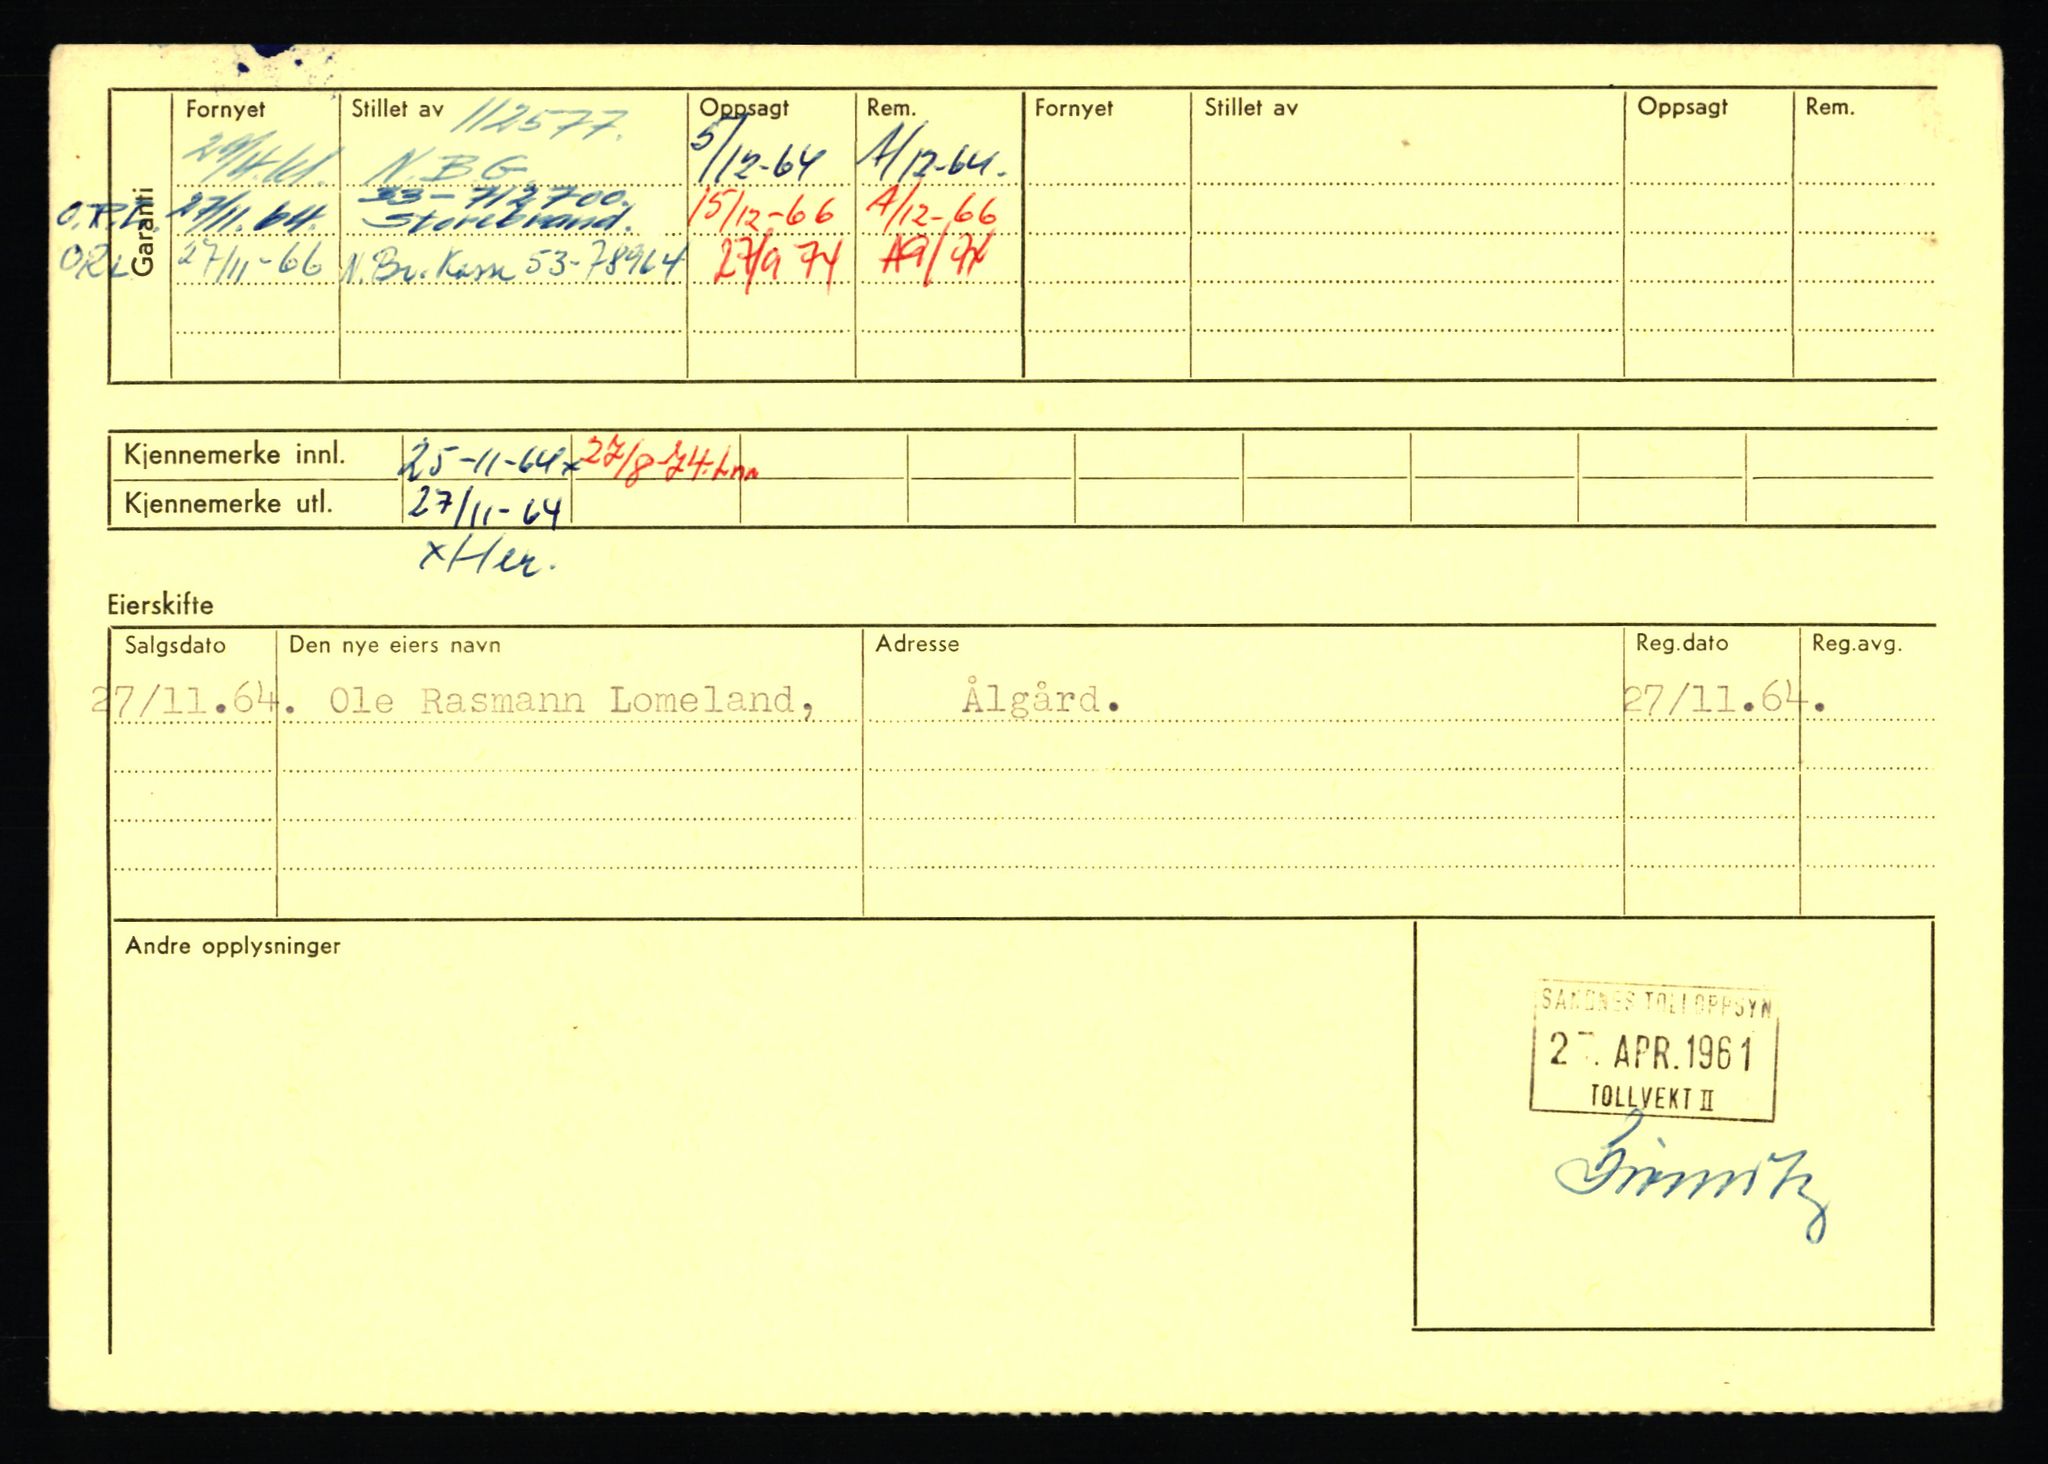 Garanti
Fornyet Stillet av 112577. Oppsagt Rem. Fornyet Stillet av Oppsagt Rem.
N.B.G. 5/12-64 A/12-64.
33-712700.
O.R.L. 27/11.64. Storebrand. 15/12-66 A/12-66
ORL 27/11-66 N.Br.Kasse 53-78964 27/9 74 A9/74
Kjennemerke innl. 25-11-64x 27/8-74
Kjennemerke utl. 27/11-64
x Her.
Eierskifte
Salgsdato Den nye eiers navn Adresse Reg.dato Reg.avg.
27/11.64. Ole Rasmann Lomeland, Ålgård. 27/11.64.
Andre opplysninger
SANDNES TOLLOPPSYN
APR. 1961
TOLLVEKT II